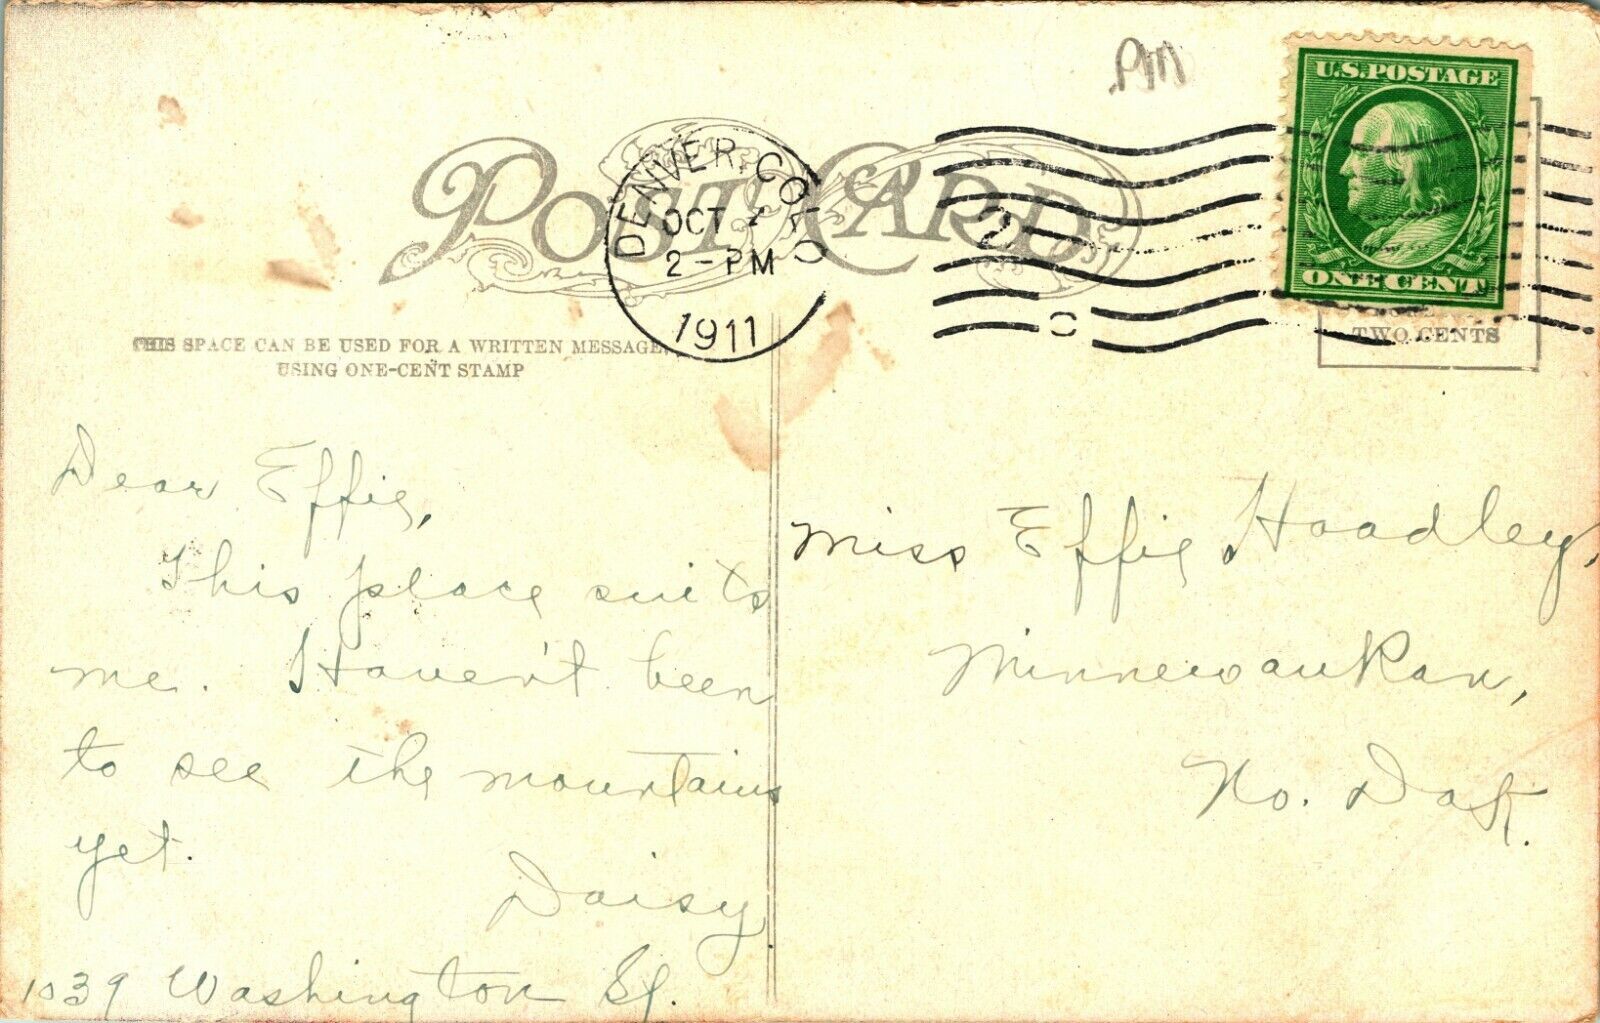 PM
U.S. POSTAGE
ONE CENT
TWO CENTS
POST CARD
DENVER, COLO
OCT
2-PM
1911
2
THIS SPACE CAN BE USED FOR A WRITTEN MESSAGE,
USING ONE-CENT STAMP
Dear Effie,
This place suits
me. Haven't been
to see the mountains
yet.
Daisy
1039 Washington
Miss Effie Hoadley,
Minnewaukan,
No. Dak.